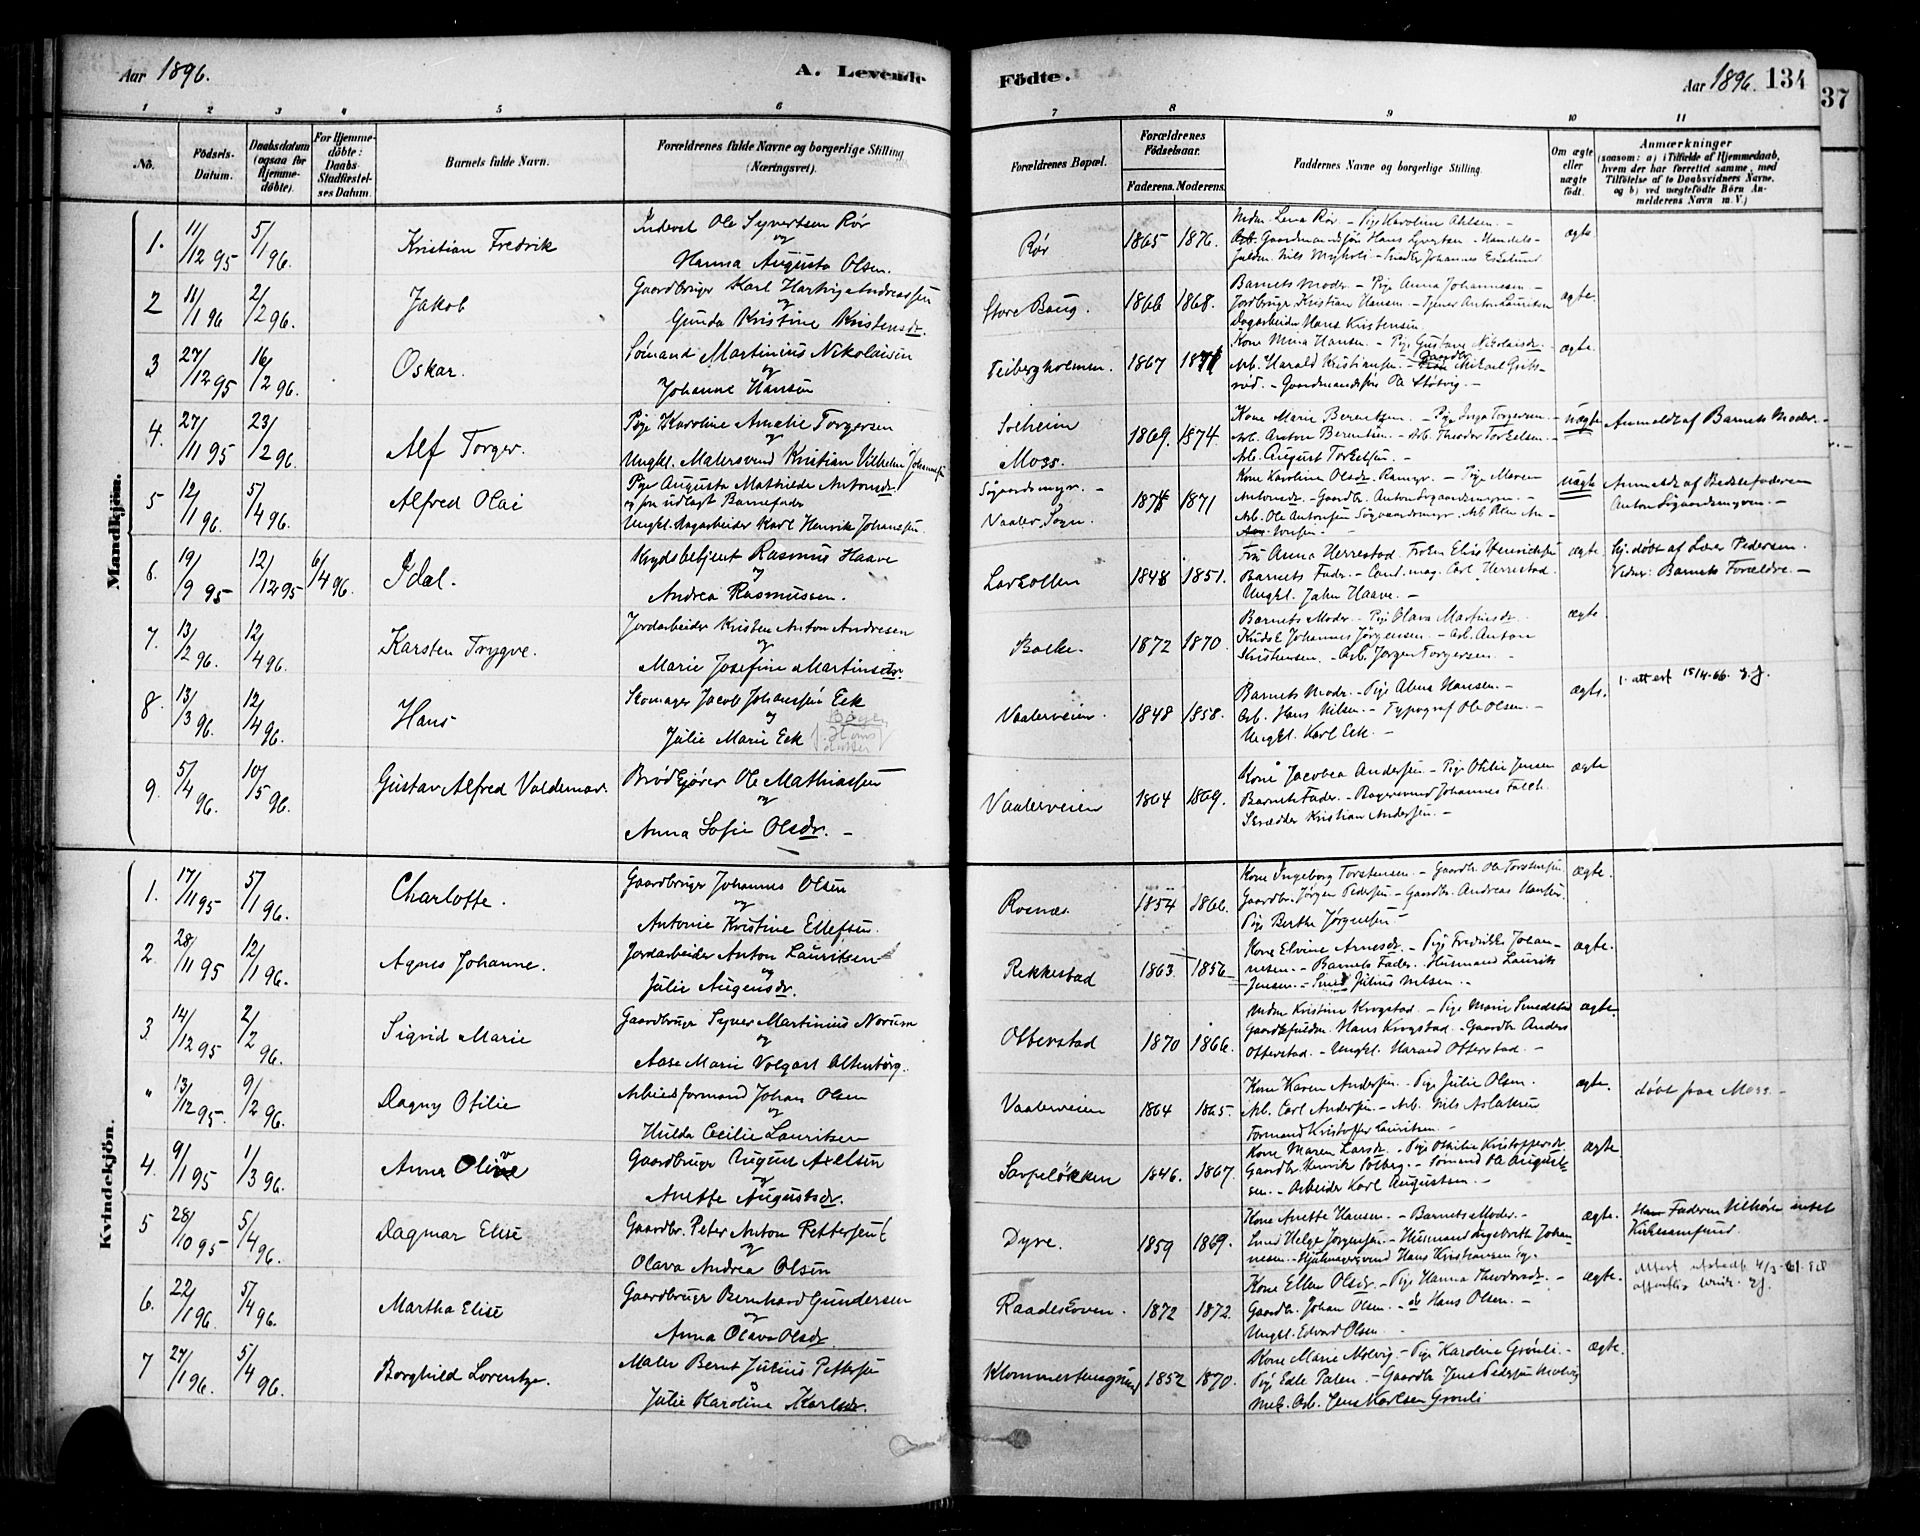 Aar 1896. A. Levende
1 2 3 4 5 6
No. Födsels-Datum. Daabsdatum (ogsaa for Hjemme-döbte). For Hjemme-döbte: Daabs-Stadfæstelses Datum. Barnets fulde Navn. Forældrenes fulde Navne og borgerlige Stilling (Næringsvei).
Mandkjön.
1. 11/12 95 5/1 96. Kristian Fredrik
Inderst Ole Syvertsen Rör
og
Hanna Augusta Olsen.
2 11/1 96 2/2 96. Jakob
Gaardbruger Karl Hartvig Andreassen
og
Gunda Kristine Kristensdr.
3 27/12 95 16/2 96. Oskar.
Sömand Martinius Nikolaisen
og
Johanne Hansen
4. 27/11 95 23/2 96. Alf Torger.
Pige Karoline Amalie Torgersen
og
Ungkl. Malersvend Kristian Vilhelm Johannsen
5 12/1 96. 5/4 96. Alfred Olai
Pige Augusta Mathilde Antonsdr.
og som udlagt Barnefader
Ungkl. Dagarbeider Karl Henrik Johanssen.
6 19/9 95 12/12 95 6/4 96. Idal.
Krydsbetjent Rasmus Haave
og
Andrea Rasmussen.
7. 13/2 96. 12/4 96. Karsten Trygve.
Jordarbeider Kristen Anton Andresen
og
Marie Josefine Martinsdr.
8. 13/3 96. 12/4 96. Hans
Skomager Jacob Johanssen Eek
og
Julie Marie Eek
9. 5/4 96. 10/5 96. Gustav Alfred Valdemar.
Brödkjører Ole Mathiassen
og
Anna Sofie Olsdr. –
Kvindekjön.
1. 17/11 95 5/1 96. Charlotte.
Gaardbruger Johannes Olsen
og
Antonie Kristine Ellefsen.
2. 28/11 95 12/1 96. Agnes Johanne.
Jordarbeider Anton Lauritsen
og
Julie Augensdr.
3. 14/12 95 2/2 96. Sigrid Marie
Gaardbruger Syver Martinius Norum
og
Aase Marie Volgart Altenborg.
" 13/12 95. 9/2 96. Dagny Otilie
Arbeidsformand Johan Olsen
og
Hulda Cecilie Lauritsen
4. 9/1 95 1/3 96. Anna Olive
Gaardbruger August Axelsen
og
Anette Augustsdr.
5 28/10 95 5/4 96. Dagmar Elise
Gaardbr. Peter Anton Pettersen
og
Olava Andrea Olsen
6. 22/1 96. 5/4 96. Martha Elise
Gaardbruger Bernhard Gundersen
og
Anna Olava Olsdr.
7 27/1 96. 5/4 96. Borghild Lorentze.
Maler Bernt Julius Pettersen
og
Julie Karoline Karlsdr.
Födte. Aar 1896. 134
37
7 8 9 10 11
Forældrenes Bopæl. Forældrenes Födselsaar. Faderens. Moderens. Faddernes Navne og borgerlige Stilling. Om ægte eller uægte födt. Anmærkninger
(saasom: a) i Tilfælde af Hjemmedaab, hvem der har forrettet samme, med Tilföielse af to Daabsvidners Navne, og b) ved uægtefödte Börn Anmelderens Navn m. V.)
Rör 1865 1876. ægte
Madm. Lena Rör. – Pige Karoline Olsen. –
Gaardmandssön Hans Syvertsen – Handels-
Johannes Eskelund
Store Baug. 1866 1868. ægte.
Barnets Moder – Pige Anna Johannesen –
Jordbruger Kristian Hansen – Tjener Anton Lauritsen
Dagarbeider Hans Kristensen
Teibergholmen. 1867 1871 ægte.
Kone Mina Hansen – Pige Gustava Nikolaisdr. –
Arb. Harald Kristiansen – Gaardbr. Mikael
– Gaardmandssön Ole Stötvig. –
Solheim Moss. 1869. 1874. uægte
Kone Marie Berentsen. – Pige Inga Torgersen. –
Arb. Anton Berentsen. – Arb. Theodor Torkelsen. –
Arb. August Torkelsen. –
Anmeldt af Barnets Moder. –
Sögaardsmyr. – Vaaler Sogn. 1871 uægte
Kone Karoline Olsdr. – Pige Maren
Antonsdr. – Gaardbr. Anton Sögaardsmyren. –
Arb. Ole Antonsen Sögaardsmyr. Arb. Olai An-
tonsen. –
Anmeldt af Bedstefaderen
Anton Sögaardsmyren. –
Larkollen 1848 1851. ægte.
Fru Anna Herrestad. Frøken Elise Henrichsen
Barnets Fader. – Cand. mag. Carl Herrestad.
Ungkl. John Haave. –
Hj. döbt af Lærer Pedersen.
Vidner: Barnets Forældre. –
Bolke. 1872 1870. ægte.
Barnets Moder – Pige Olava Martinsdr.
Kudsk Johannes Jörgensen. – Arb. Anton
Kristensen. – Arb. Jörgen Torgersen. –
Vaalerveien. 1848 1858. ægte.
Barnets Moder. – Pige Alma Hansen. –
Arb. Hans Nilsen. – Typograf Ole Olsen. –
Ungkl. Karl Eek. –
1. attest 15/4-66.
Vaalerveien 1864 1869. ægte
Kone Jacobea Andersen – Pige Otilie Jensen
Barnets Fader. – Bagersvend Johannes Falch.
Skrædder Kristian Andersen. –
Rosnæs. 1854 1866. ægte.
Kone Ingeborg Torstensen. – Gaardbr. Ole Torstensen
Gaardbr. Jörgen Pedersen – Gaardbr. Andreas Hansen
Pige Berthe Jörgensen –
Rekkestad 1863. 1856 ægte.
Kone Elvine Arnesdr. – Pige Fredrikke Johan-
nesen. – Barnets Fader. Husmand Laurits
Jensen. – Smed Julius Nilsen. –
Otterstad 1870 1866. ægte.
Madm Kristine Krogstad – Pige Marie Smedstad
Hans Krogstad. – Gaardbr. Anders
Otterstad. – Ungkl. Harald Otterstad. –
Vaalerveien 1864 1865. ægte.
Kone Karen Andersen. – Pige Julie Olsen.
Arb. Carl Andersen. – Arb. Nils Aslaksen
Formand Kristoffer Lauritsen. –
döbt paa Moss. –
Sarpelökken 1846. 1867. ægte
Kone Maren Larsdr. – Pige Othilie Kristoffersdr.
Gaardbr. Henrik Solberg. – Sömand Ole August-
sen. – Arbeider Karl Augustsen. –
Dyre. 1859 1869. ægte.
Kone Anette Hansen. – Barnets Moder. –
Smed Helge Jörgensen. – Husmand Ingebreth Johan-
nesen – Hans Kristiansen
Faderen tilhörer intet
Kirkesamfund.
Raadeskoven. 1872 1872. ægte.
Kone Ellen Olsdr. – Pige Hanna Theodorsdr. –
Gaardbr. Johan Olsen. – do Hans Olsen. –
Ungkl. Edvard Olsen. –
Attest utstedt 4/3-61 til
offentlig bruk.
Klommestensgrund 1852 1870. ægte.
Kone Marie Molvig. – Pige Karoline Grönli. –
Pige Edle Palen. – Gaardbr. Jens Pedersen Molvig
Arb. Jens Karlsen Grönli